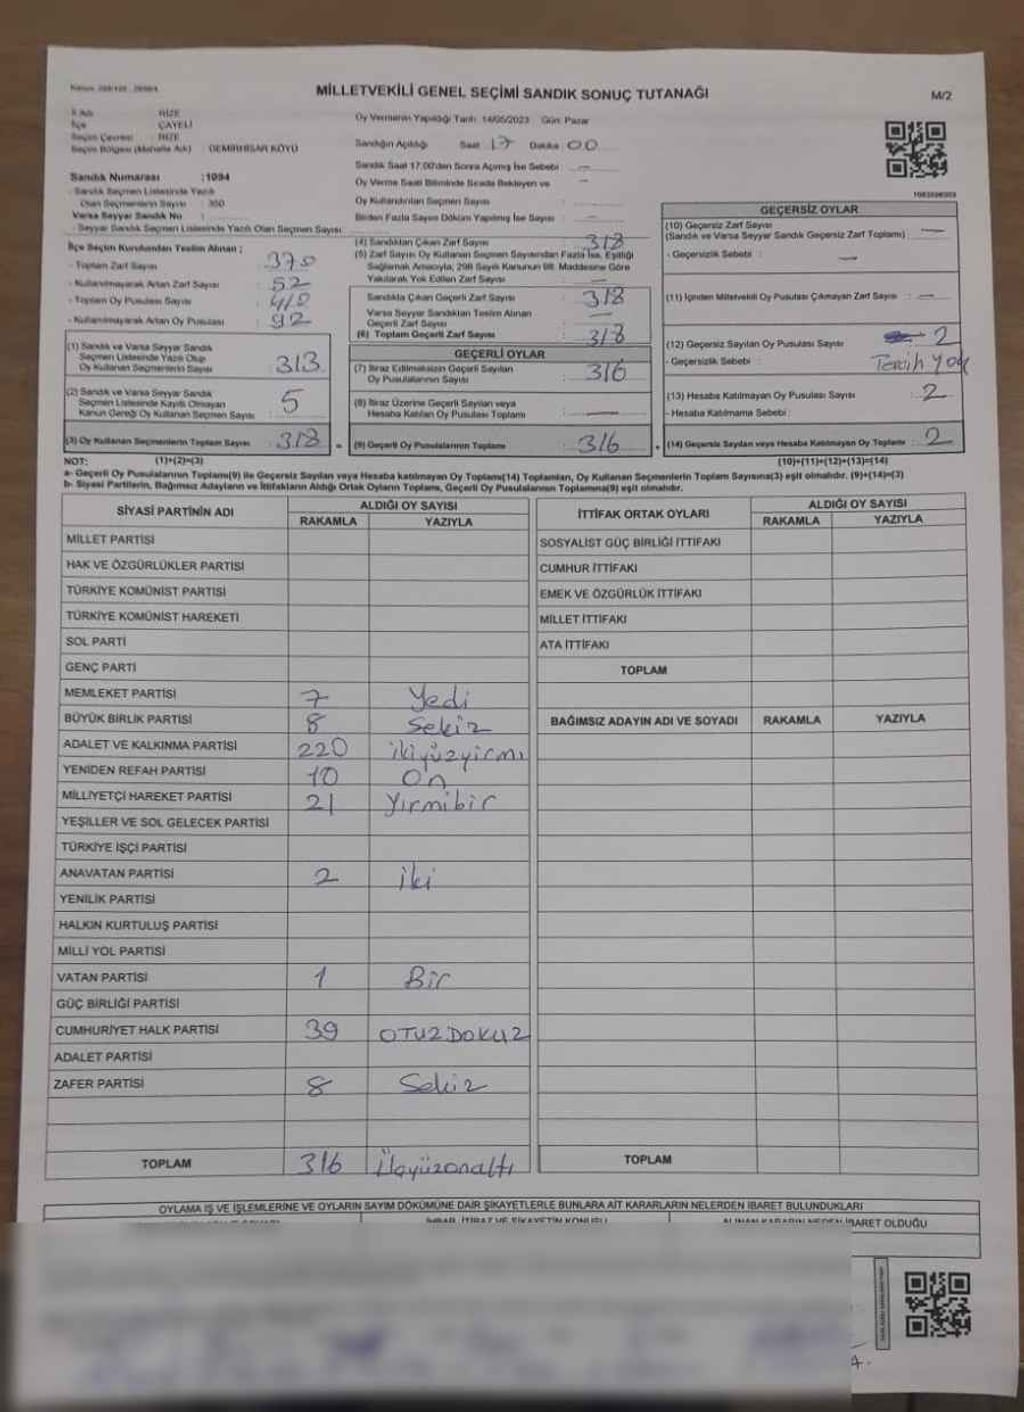 MİLLETVEKİLİ GENEL SEÇİMİ SANDIK SONUÇ TUTANAĞI
M/2
İl Adı : RİZE
İlçe : ÇAYELİ
Seçim Çevresi : RİZE
Seçim Bölgesi (Mahalle Adı) : DEMİRHİSAR KÖYÜ
Oy Vermenin Yapıldığı Tarih: 14/05/2023 Gün: Pazar
Sandığın Açıldığı Saat 17 Dakika 00
Sandık Saat 17:00'den Sonra Açılmış İse Sebebi : —
Oy Verme Saati Bitiminde Sırada Bekleyen ve —
Oy Kullandırılan Seçmen Sayısı
Birden Fazla Sayım Döküm Yapılmış İse Sayısı : —
Sandık Numarası : 1094
- Sandık Seçmen Listesinde Yazılı
Olan Seçmenlerin Sayısı : 350
Varsa Seyyar Sandık No :
- Seyyar Sandık Seçmen Listesinde Yazılı Olan Seçmen Sayısı
İlçe Seçim Kurulundan Teslim Alınan ;
- Toplam Zarf Sayısı : 370
- Kullanılmayarak Artan Zarf Sayısı : 52
- Toplam Oy Pusulası Sayısı : 410
- Kullanılmayarak Artan Oy Pusulası : 92
(1) Sandık ve Varsa Seyyar Sandık
Seçmen Listesinde Yazılı Olup
Oy Kullanan Seçmenlerin Sayısı : 313
(2) Sandık ve Varsa Seyyar Sandık
Seçmen Listesinde Kayıtlı Olmayan
Kanun Gereği Oy Kullanan Seçmen Sayısı : 5
(3) Oy Kullanan Seçmenlerin Toplam Sayısı : 318
(4) Sandıktan Çıkan Zarf Sayısı : 318
(5) Zarf Sayısı Oy Kullanan Seçmen Sayısından Fazla İse, Eşitliği
Sağlamak Amacıyla, 298 Sayılı Kanunun 98. Maddesine Göre
Yakılarak Yok Edilen Zarf Sayısı : —
Sandıkta Çıkan Geçerli Zarf Sayısı : 318
Varsa Seyyar Sandıktan Teslim Alınan
Geçerli Zarf Sayısı : —
(6) Toplam Geçerli Zarf Sayısı : 318
GEÇERLİ OYLAR
(7) İtiraz Edilmeksizin Geçerli Sayılan
Oy Pusulalarının Sayısı : 316
(8) İtiraz Üzerine Geçerli Sayılan veya
Hesaba Katılan Oy Pusulası Toplamı : —
= (9) Geçerli Oy Pusulalarının Toplamı : 316
GEÇERSİZ OYLAR
(10) Geçersiz Zarf Sayısı
(Sandık ve Varsa Seyyar Sandık Geçersiz Zarf Toplamı) : —
- Geçersizlik Sebebi : —
(11) İçinden Milletvekili Oy Pusulası Çıkmayan Zarf Sayısı : —
(12) Geçersiz Sayılan Oy Pusulası Sayısı : 2
- Geçersizlik Sebebi : Tercih Yok
(13) Hesaba Katılmayan Oy Pusulası Sayısı : 2
- Hesaba Katılmama Sebebi :
(14) Geçersiz Sayılan veya Hesaba Katılmayan Oy Toplamı : 2
NOT: (1)+(2)=(3) (10)+(11)+(12)+(13)=(14)
a- Geçerli Oy Pusulalarının Toplamı(9) ile Geçersiz Sayılan veya Hesaba katılmayan Oy Toplamı(14) Toplamları, Oy Kullanan Seçmenlerin Toplam Sayısına(3) eşit olmalıdır. (9)+(14)=(3)
b- Siyasi Partilerin, Bağımsız Adayların ve İttifakların Aldığı Ortak Oyların Toplamı, Geçerli Oy Pusulalarının Toplamına(9) eşit olmalıdır.
SİYASİ PARTİNİN ADI ALDIĞI OY SAYISI
RAKAMLA YAZIYLA
MİLLET PARTİSİ
HAK VE ÖZGÜRLÜKLER PARTİSİ
TÜRKİYE KOMÜNİST PARTİSİ
TÜRKİYE KOMÜNİST HAREKETİ
SOL PARTİ
GENÇ PARTİ
MEMLEKET PARTİSİ 7 Yedi
BÜYÜK BİRLİK PARTİSİ 8 Sekiz
ADALET VE KALKINMA PARTİSİ 220 ikiyüzyirmi
YENİDEN REFAH PARTİSİ 10 On
MİLLİYETÇİ HAREKET PARTİSİ 21 Yirmibir
YEŞİLLER VE SOL GELECEK PARTİSİ
TÜRKİYE İŞÇİ PARTİSİ
ANAVATAN PARTİSİ 2 iki
YENİLİK PARTİSİ
HALKIN KURTULUŞ PARTİSİ
MİLLİ YOL PARTİSİ
VATAN PARTİSİ 1 Bir
GÜÇ BİRLİĞİ PARTİSİ
CUMHURİYET HALK PARTİSİ 39 OTUZDOKUZ
ADALET PARTİSİ
ZAFER PARTİSİ 8 Sekiz
TOPLAM 316 Üçyüzonaltı
İTTİFAK ORTAK OYLARI ALDIĞI OY SAYISI
RAKAMLA YAZIYLA
SOSYALİST GÜÇ BİRLİĞİ İTTİFAKI
CUMHUR İTTİFAKI
EMEK VE ÖZGÜRLÜK İTTİFAKI
MİLLET İTTİFAKI
ATA İTTİFAKI
TOPLAM
BAĞIMSIZ ADAYIN ADI VE SOYADI RAKAMLA YAZIYLA
TOPLAM
OYLAMA İŞ VE İŞLEMLERİNE VE OYLARIN SAYIM DÖKÜMÜNE DAİR ŞİKAYETLERLE BUNLARA AİT KARARLARIN NELERDEN İBARET BULUNDUKLARI
İHBAR, İTİRAZ VE ŞİKAYETİN KONUSU
ALINAN KARARIN NEDEN İBARET OLDUĞU